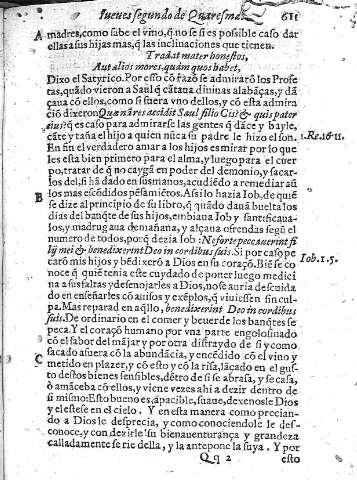 Iueues segundo de Quaresma. 611
A madres, como sabe el vino, q̃ no se si es possible caso dar
ellas a sus hijas mas, q̃ las inclinaciones que tienen.
Tradat mater honestos,
Aut alios mores, quàm quos habet,
Dixo el Satyrico. Por esso cõ razõ se admirarõ los Profe
tas, quãdo vieron a Saul q̃ cãtaua diuinas alabãças, y dã
çaua cõ ellos, como si fuera vno dellos, y cõ esta admira
ciõ dixeron: Quæ nã res accidit Saul filio Cis? & quis pater
eius? q̃ es caso para admirarse las gentes q̃ dãce y bayle, 1. Re. 10. 11.
cãte y taña el hijo a quien nũca su padre le hizo el son.
En fin el verdadero amar a los hijos es mirar por lo que
les esta bien primero para el alma, y luego para el cuer
po, tratar de q̃ no caygã en poder del demonio, y sacar-
los del, si hã dado en sus manos, acudiẽdo a remediar aũ
los mas escõdidos pẽsamiẽtos. Assi lo hazia Iob, de quiẽ
B se dize al principio de su libro, q̃ quãdo daua buelta los
dias del banq̃te de sus hijos, embiaua Iob y santificaua-
los, y madrugaua de mañana, y alçaua ofrendas segũ el
numero de todos, porq̃ dezia Iob: Ne forte peccauerint fi
lij mei & benedixerint Deo in cordibus suis. Si por caso pe Iob. 1. 5.
carõ mis hijos y bẽdixerõ a Dios en su coraçõ. Biẽ se co
noce q̃ quiẽ tenia este cuydado de poner luego medici
na a sus faltas y desenojarles a Dios, no se auria descuida
do en enseñarles cõ auisos y exẽplos, q̃ viuiessen sin cul-
pa. Mas reparad en aq̃llo, benedixerint Deo in cordibus
suis. De ordinario en el comer y beuer de los banq̃tes se
peca. Y el coraçõ humano por vna parte engolosinado
cõ el sabor del mãjar y por otra distraydo de si y como
C sacado afuera cõ la abundãcia, y encẽdido cõ el vino y
metido en plazer, y cõ esto y cõ la risa, laçado en el gus-
to destos bienes sensibles, dẽtro de si se abrasa, y se casa,
ò amãceba cõ ellos, y viene vezes ahi a dezir dentro de
si mismo: Esto bueno es, apacible, suaue, dexenosle Dios
y el estese en el cielo. Y en esta manera como precian-
do a Dios le desprecia, y como conociendole le des-
conoce, y con dezirle su bienauenturança y grandeza
calladamente se rie della, y la antepone la suya. Y por
Qq 2 esto